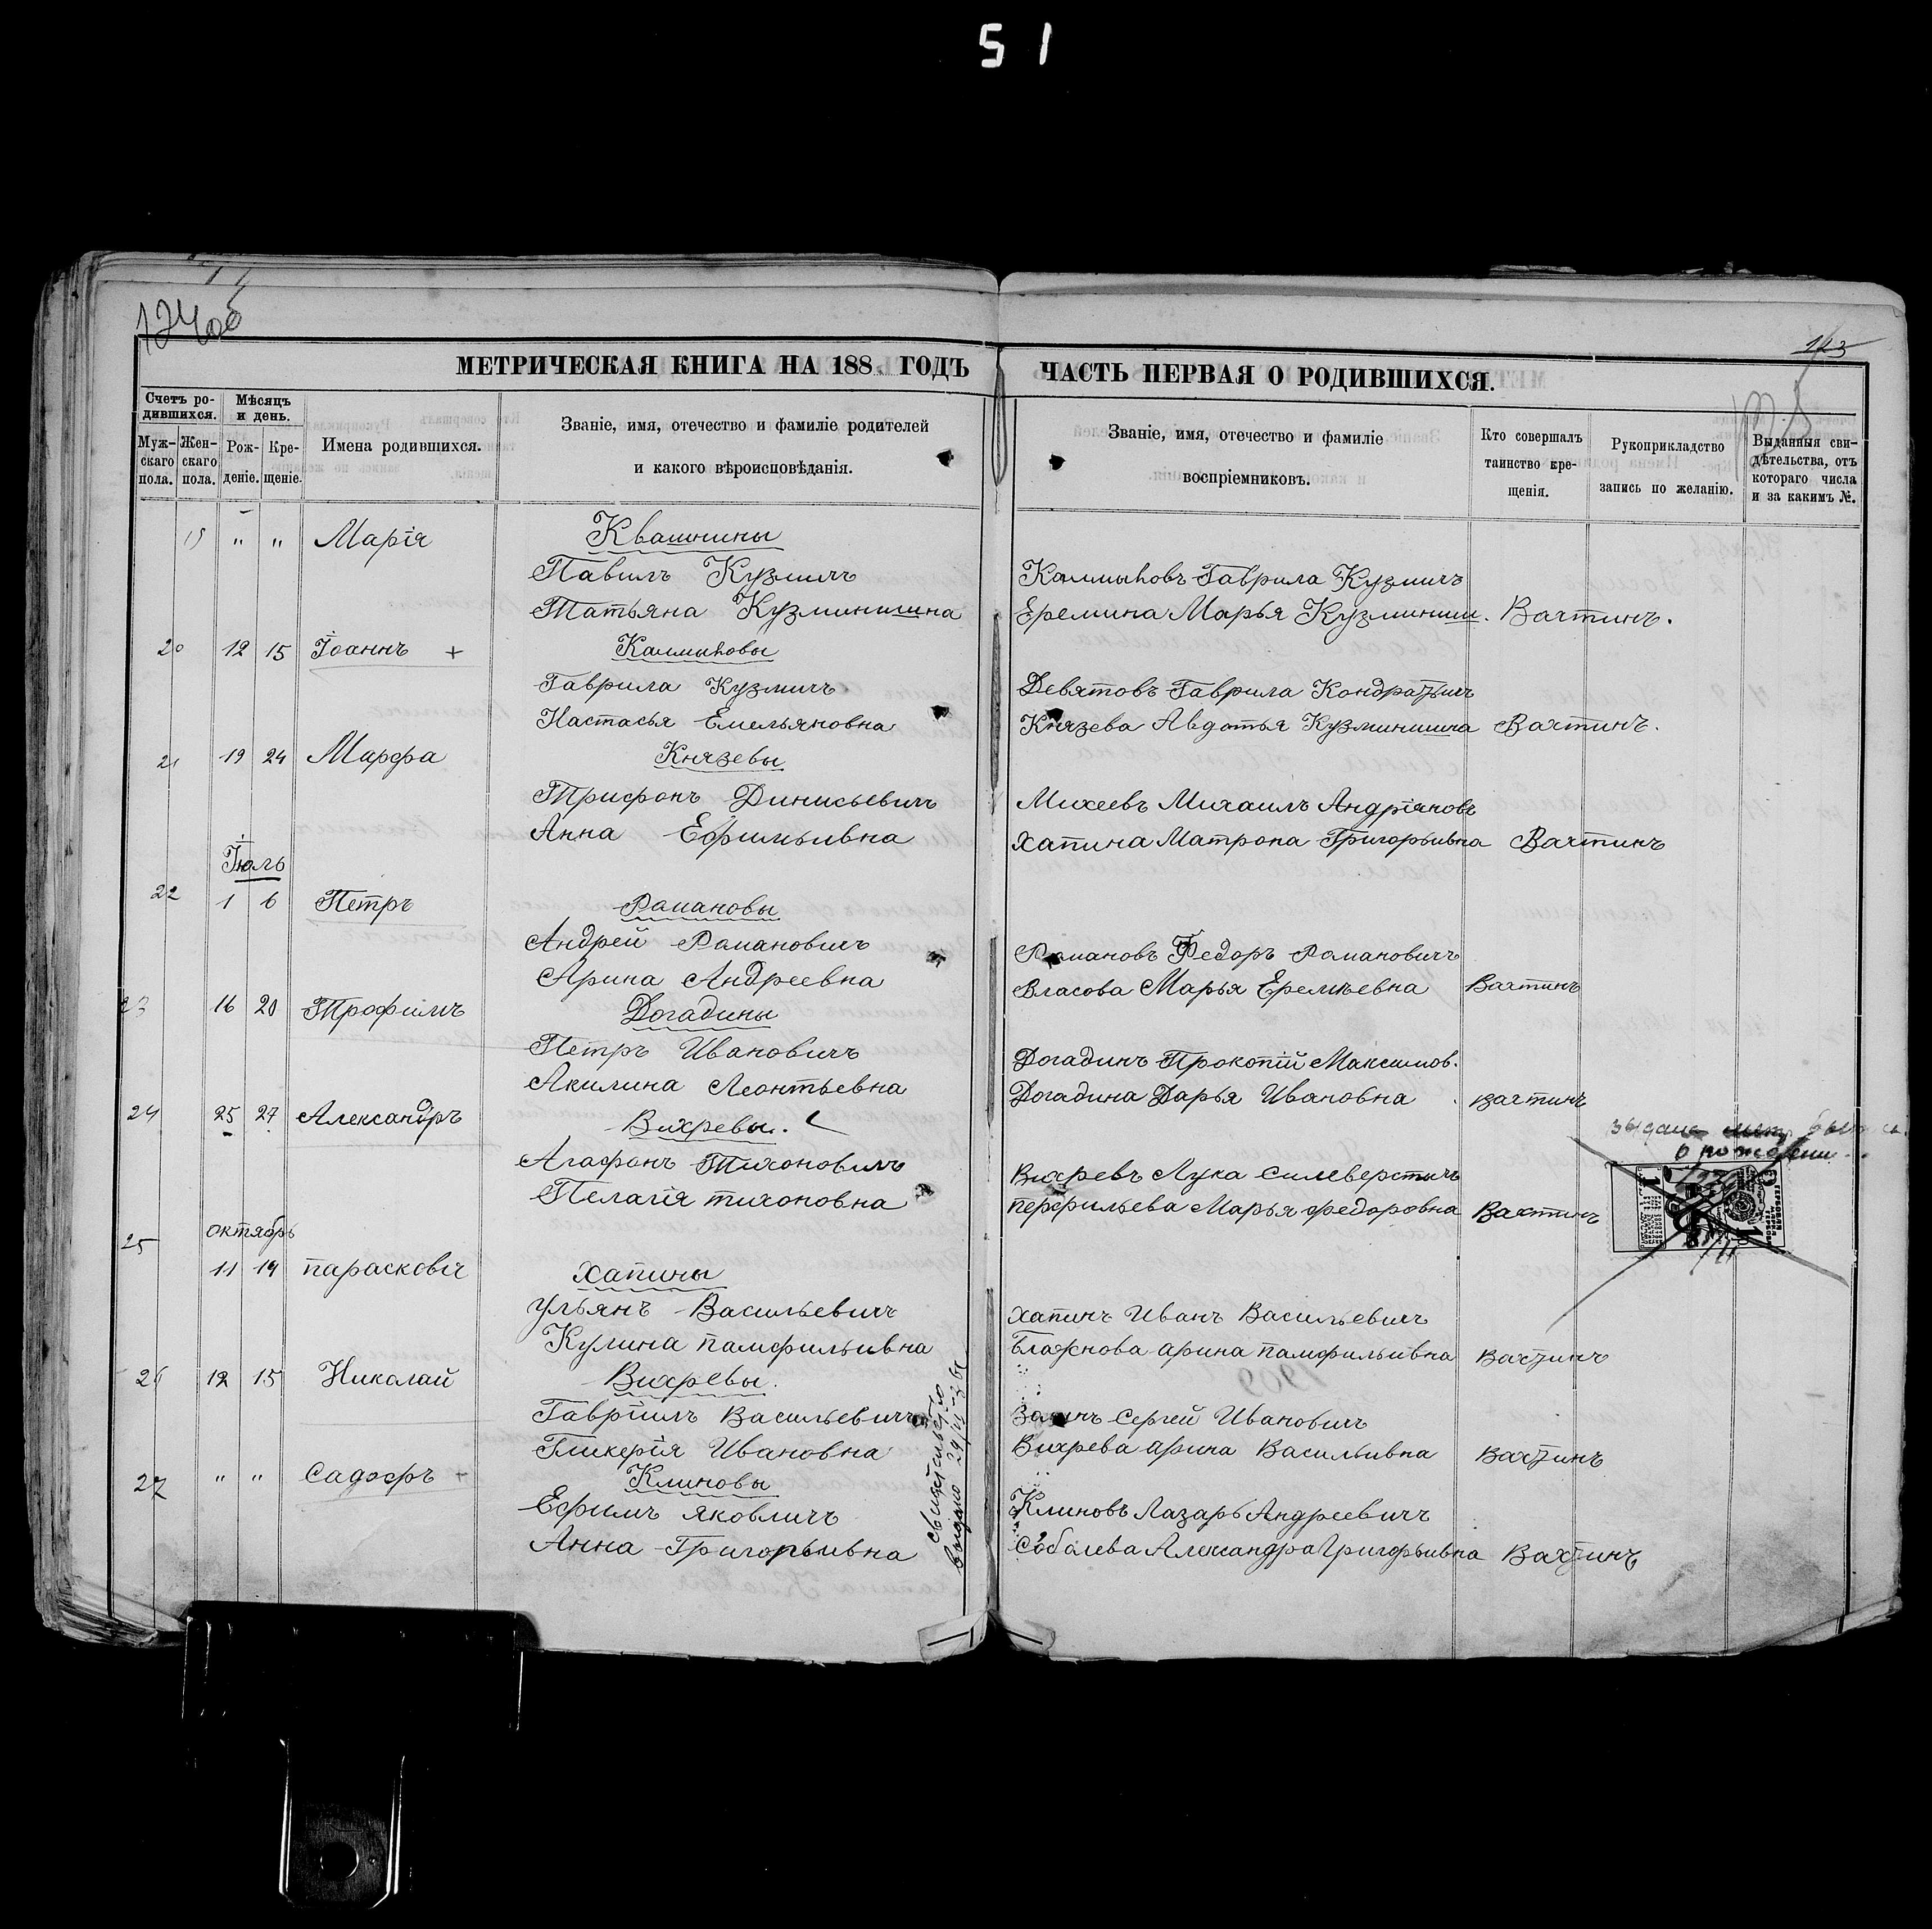 51
124об
123
МЕТРИЧЕСКАЯ КНИГА НА 188 ГОДЪ
ЧАСТЬ ПЕРВАЯ О РОДИВШИХСЯ.
Счетъ родившихся.
Мужскаго пола.
Женскаго пола.
Мѣсяцъ и день.
Рожденіе.
Крещеніе.
Имена родившихся.
Званіе, имя, отечество и фамиліе родителей
и какого вѣроисповѣданія.
Званіе, имя, отечество и фамиліе
воспріемниковъ.
Кто совершалъ
таинство крещенія.
Рукоприкладство
запись по желанію.
Выданныя свидѣтельства, отъ
котораго числа
и за какимъ №.
19 " " Марія Квашнины
Павилъ Кузмичъ Калмыковъ Гаврила Кузмичъ
Татьяна Кузминишна Еремина Марья Кузминиш. Вахтинъ.
20 12 15 Іоаннъ + Калмыковы
Гаврила Кузмичъ Девятовъ Гаврила Кондратьичъ
Настасья Емельяновна Князева Авдотья Кузминишна Вахтинъ.
21 19 24 Марфа Князевы
Трифонъ Динисьевичъ Михеевъ Михаилъ Андріяновъ
Анна Ефимьивна Хапина Матрона Григорьивна Вахтинъ
Іюль
22 1 6 Петръ Рамановы
Андрей Рамановичъ Рамановъ Федоръ Рамановичъ
Арина Андреевна Власова Марья Еремѣевна Вахтинъ
23 16 20 Трофимъ Догадины
Петръ Ивановичъ Догадинъ Прокопій Максимов.
Акилина Леонтьевна Догадина Дарья Ивановна вахтинъ
24 25 27 Александръ Вихревы.
о рожденіи
Агафонъ Тихоновичъ Вихревъ Лука Силеверстичъ
Пелагія тихоновна перфильева Марья федоровна Вахтинъ
октябрь
25 11 14 парасковіе хапины
ульянъ Васильевичъ хапинъ Иванъ Васильевичъ
Кулина памфильивна Блажнова арина памфильивна вахтинъ
26 12 15 Николай Вихревы.
Гавріилъ Васильевичъ Сергей Ивановичъ
Гликерія Ивановна Вихрева арина Васильивна вахтинъ
27 " " Садофъ + Клиновы
Ефимъ яковличъ Клиновъ Лазарь Андреевичъ
Анна Григорьивна Соболева Александра Григорьивна Вахтинъ
выдано